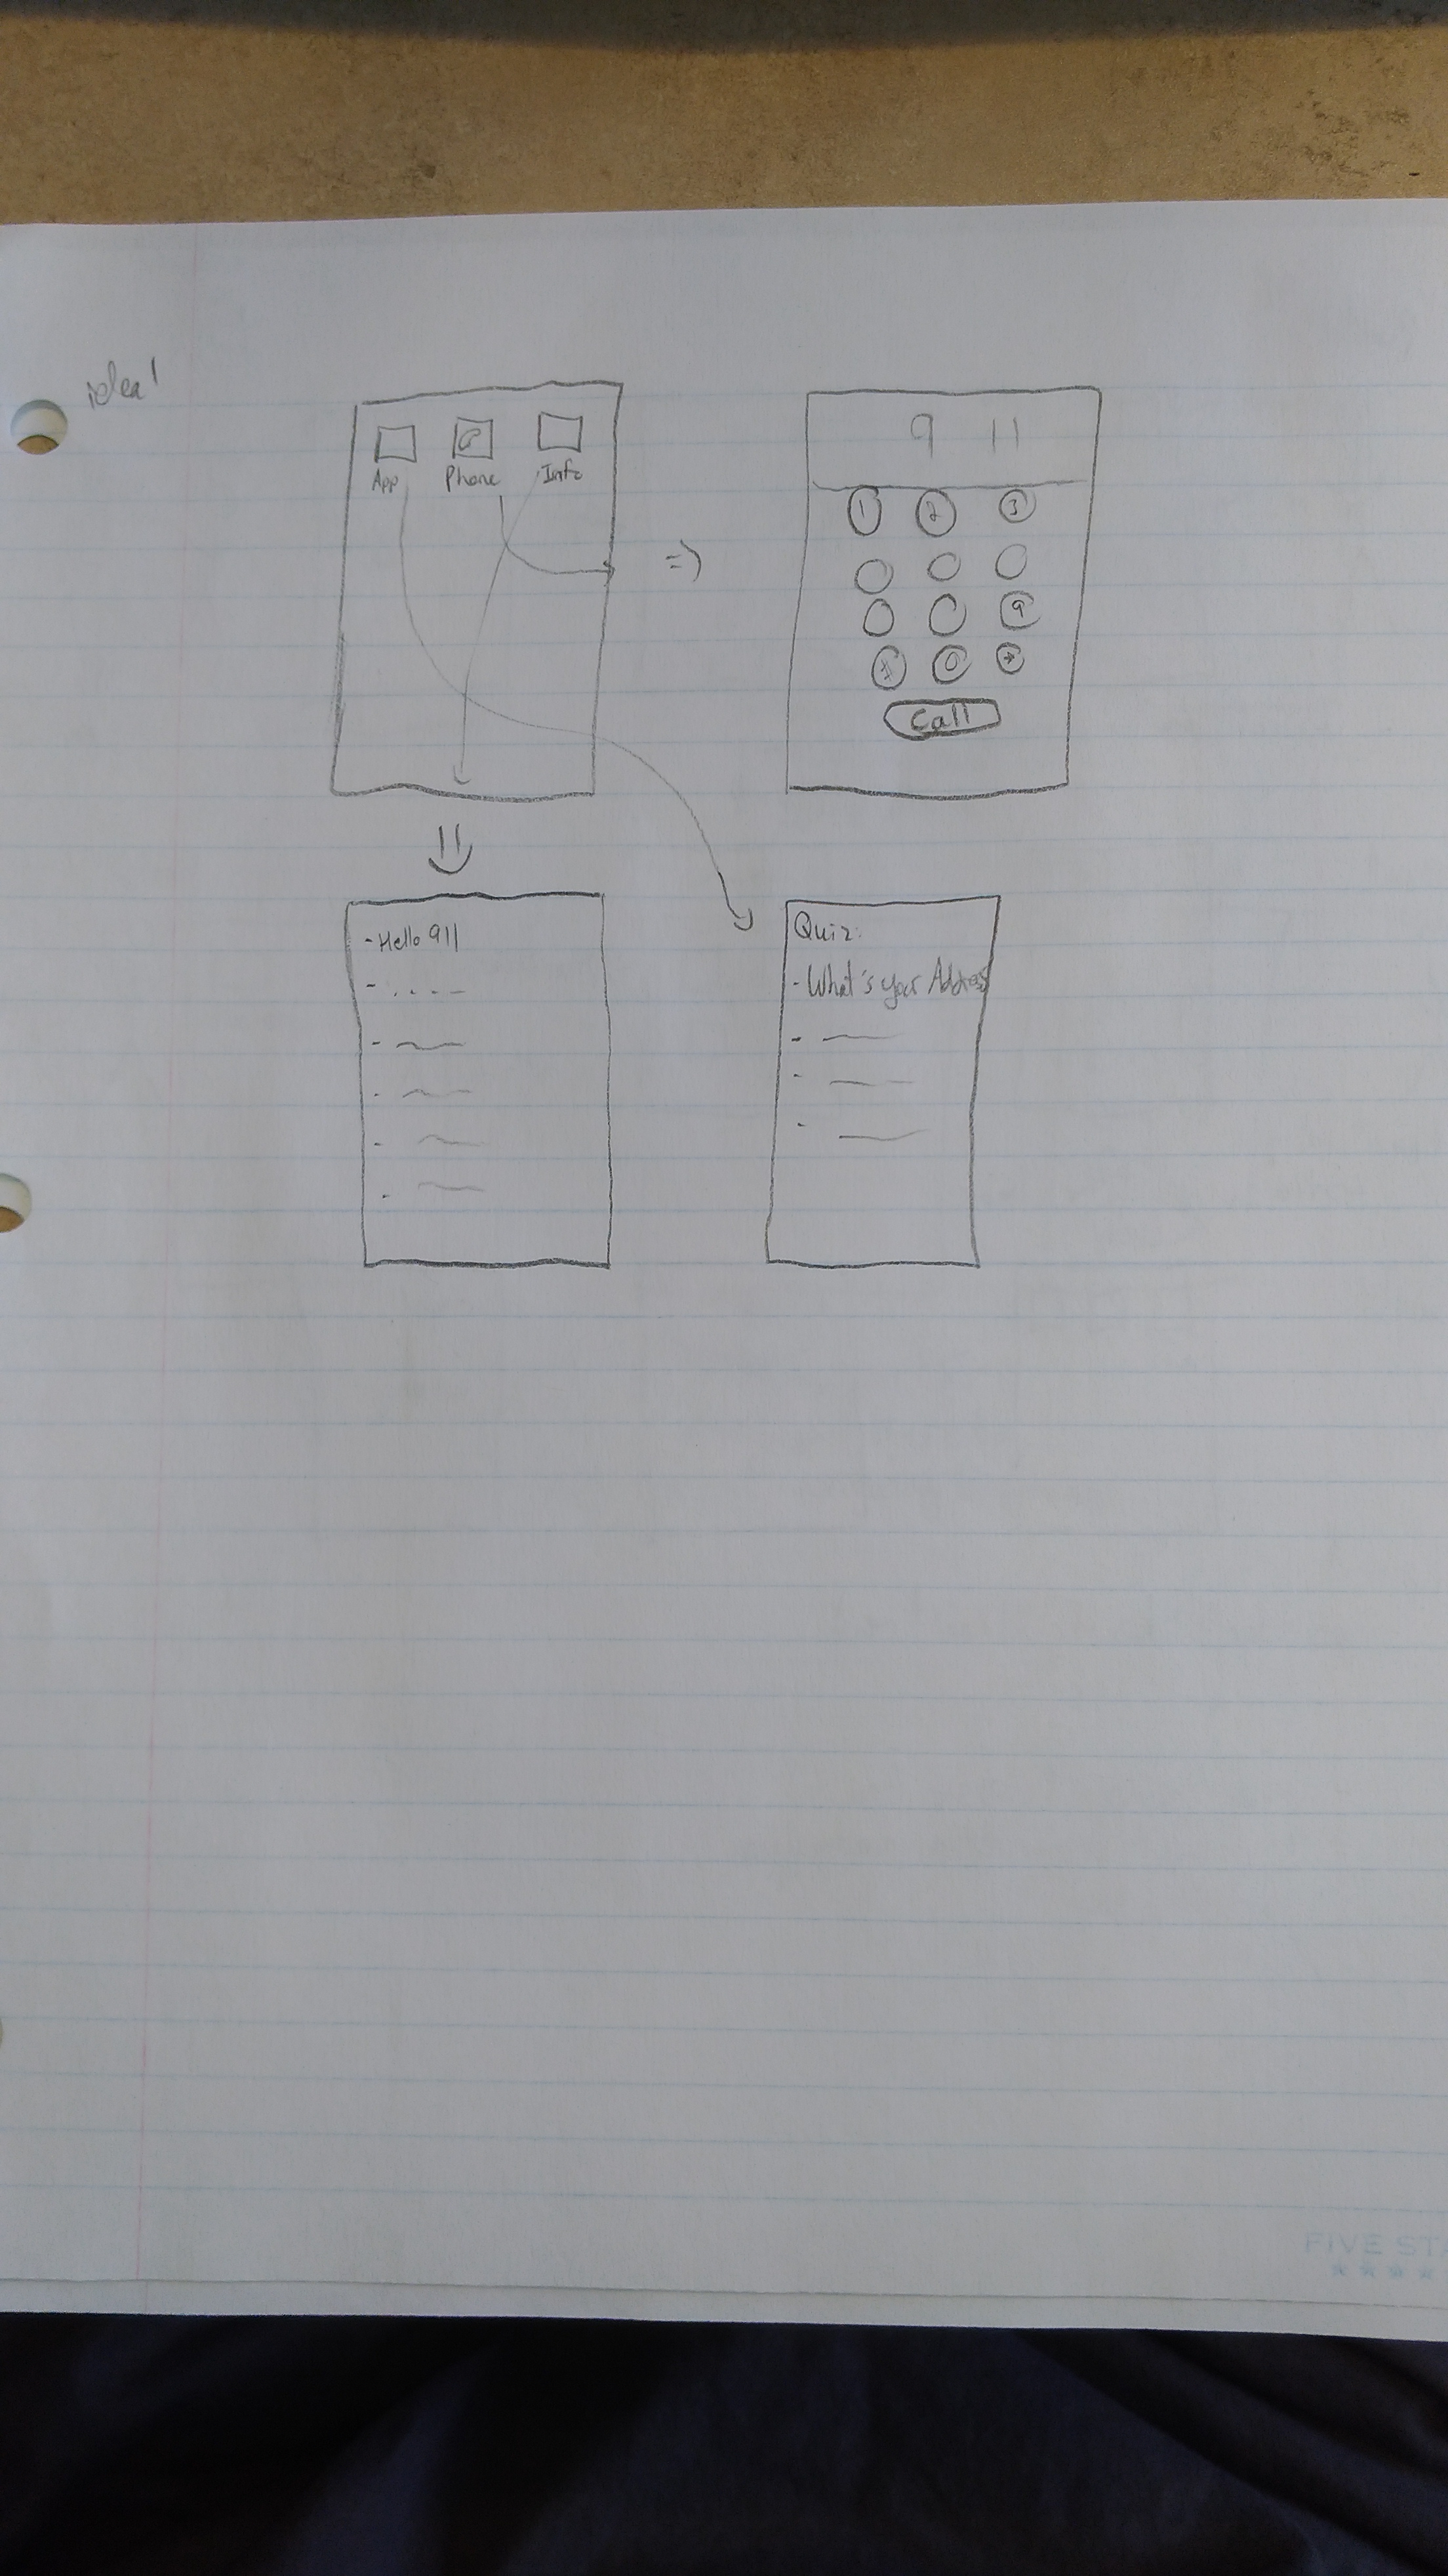 idea!
App Phone Info
9 11
1 2 3
9
0 *
Call
- Hello 911
Quiz:
- What's your Address
FIVE STA